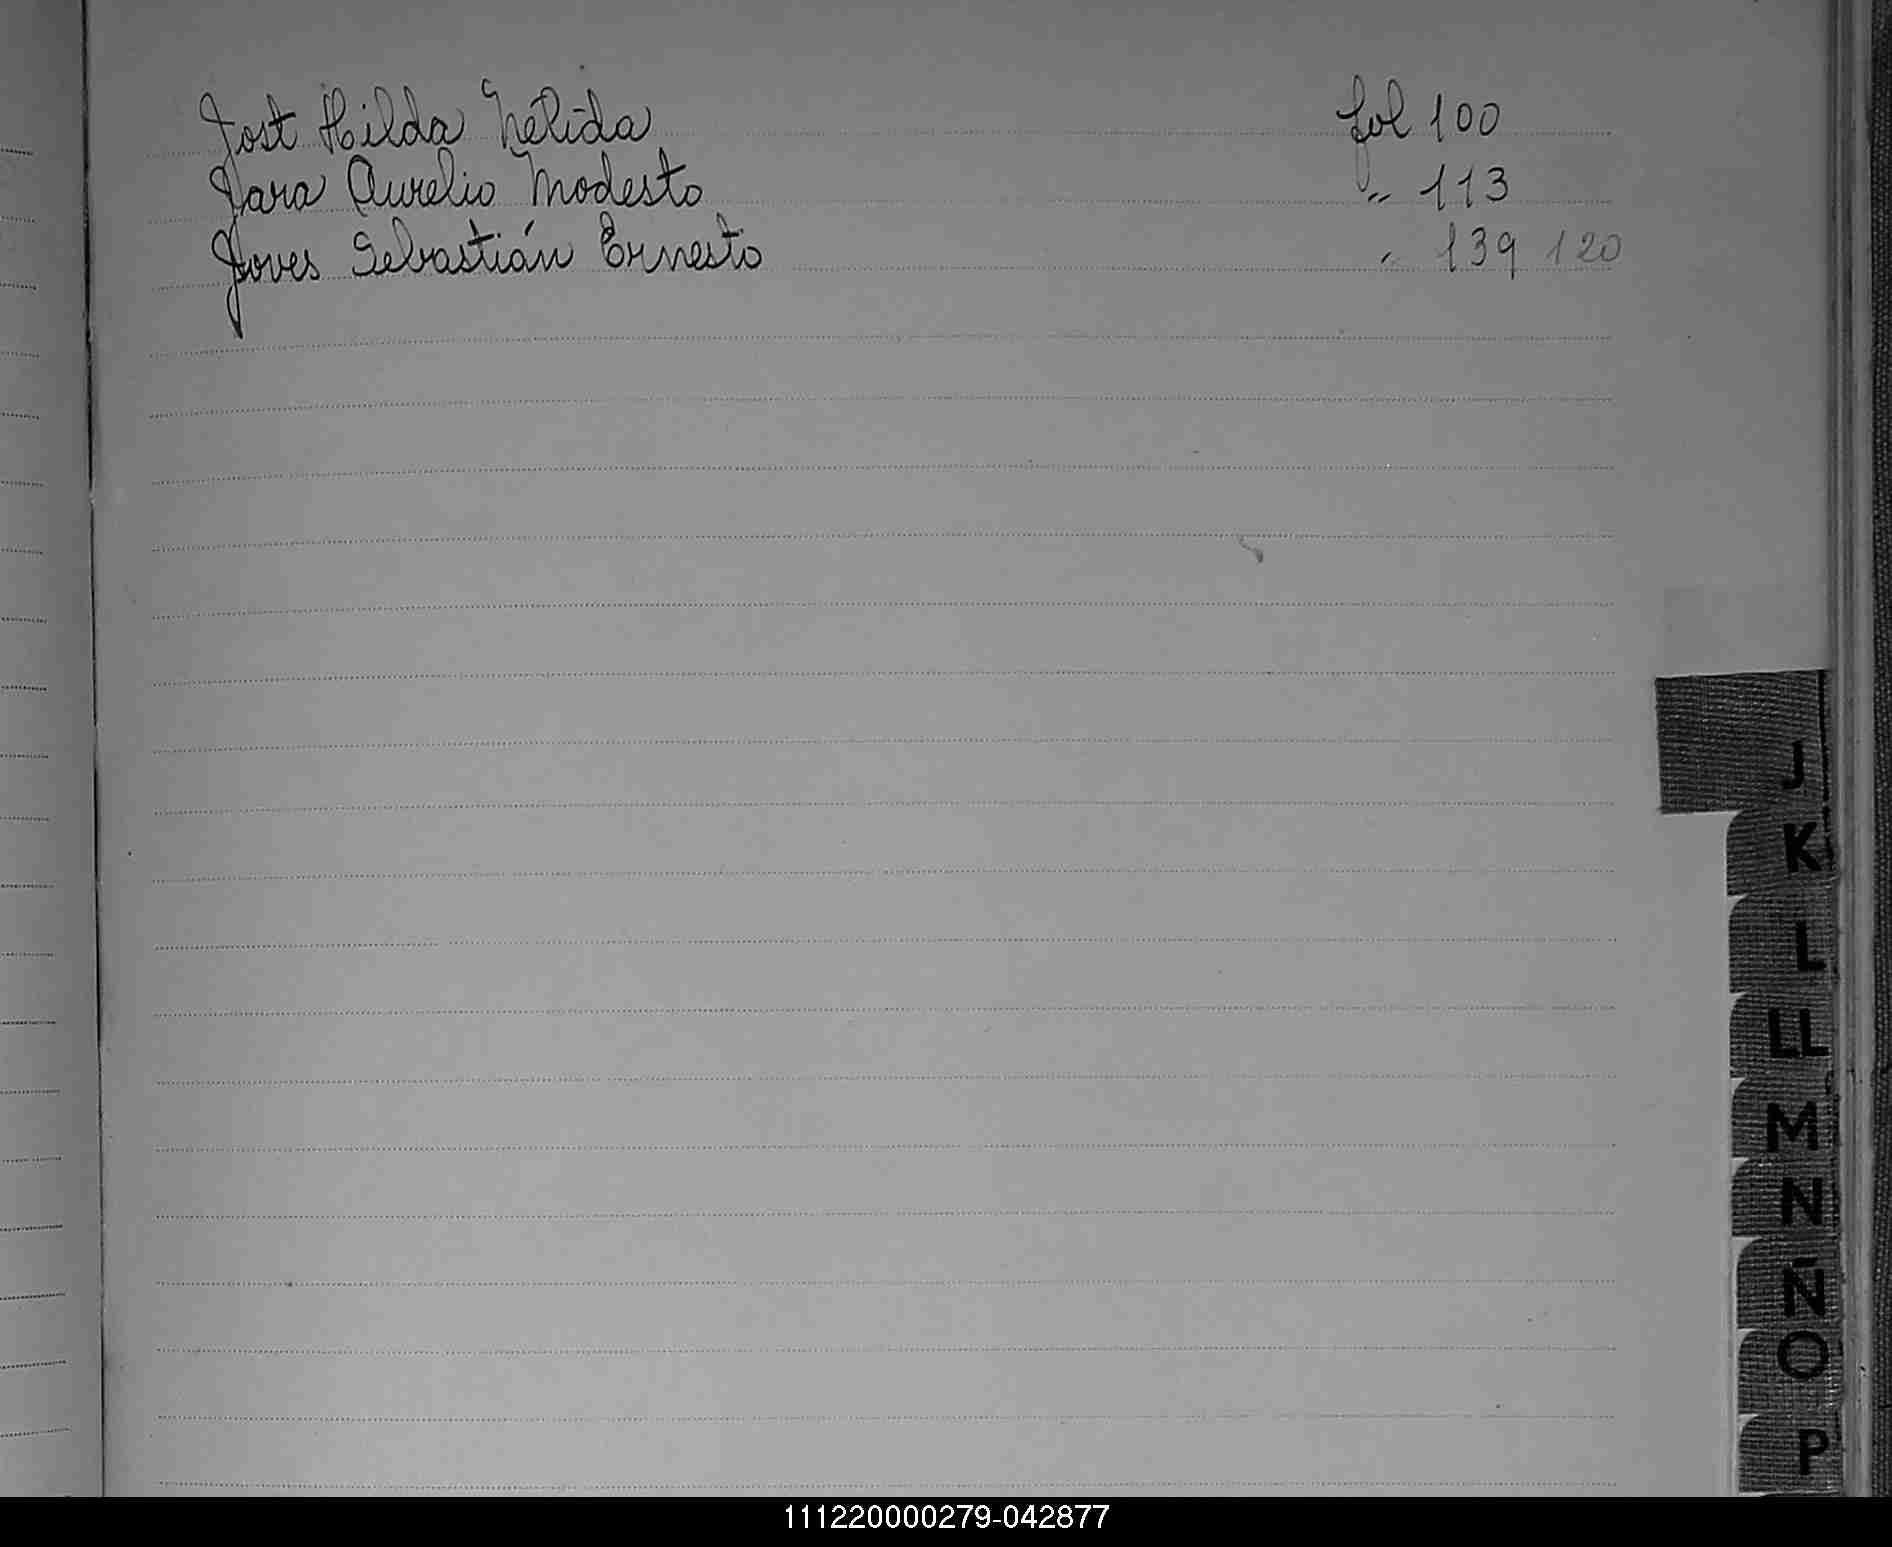 Jost Hilda Nélida fol 100
Jara Aurelio Modesto " 113
Joves Sebastián Ernesto " 139 120
J
K
L
LL
M
N
Ñ
O
P
111220000279-042877